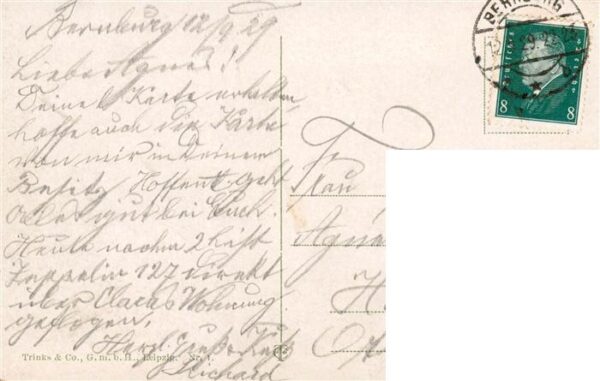 Bernburg 12/9 29
Liebe Agnes!
Deine Karte erhalten
hoffe auch die Karte
von mir in Deinem
Besitz. Hoffentl. geht
alles gut bei Euch.
Heute nachm 2 h ist
Zeppelin 127 direkt
über Claras Wohnung
geflogen.
Herzl. Gruß u. Kuß
Richard
Trinks & Co., G. m. b. H., Leipzig. Nr. 1.
BERNBURG
8 8
Frau
Agnes
H